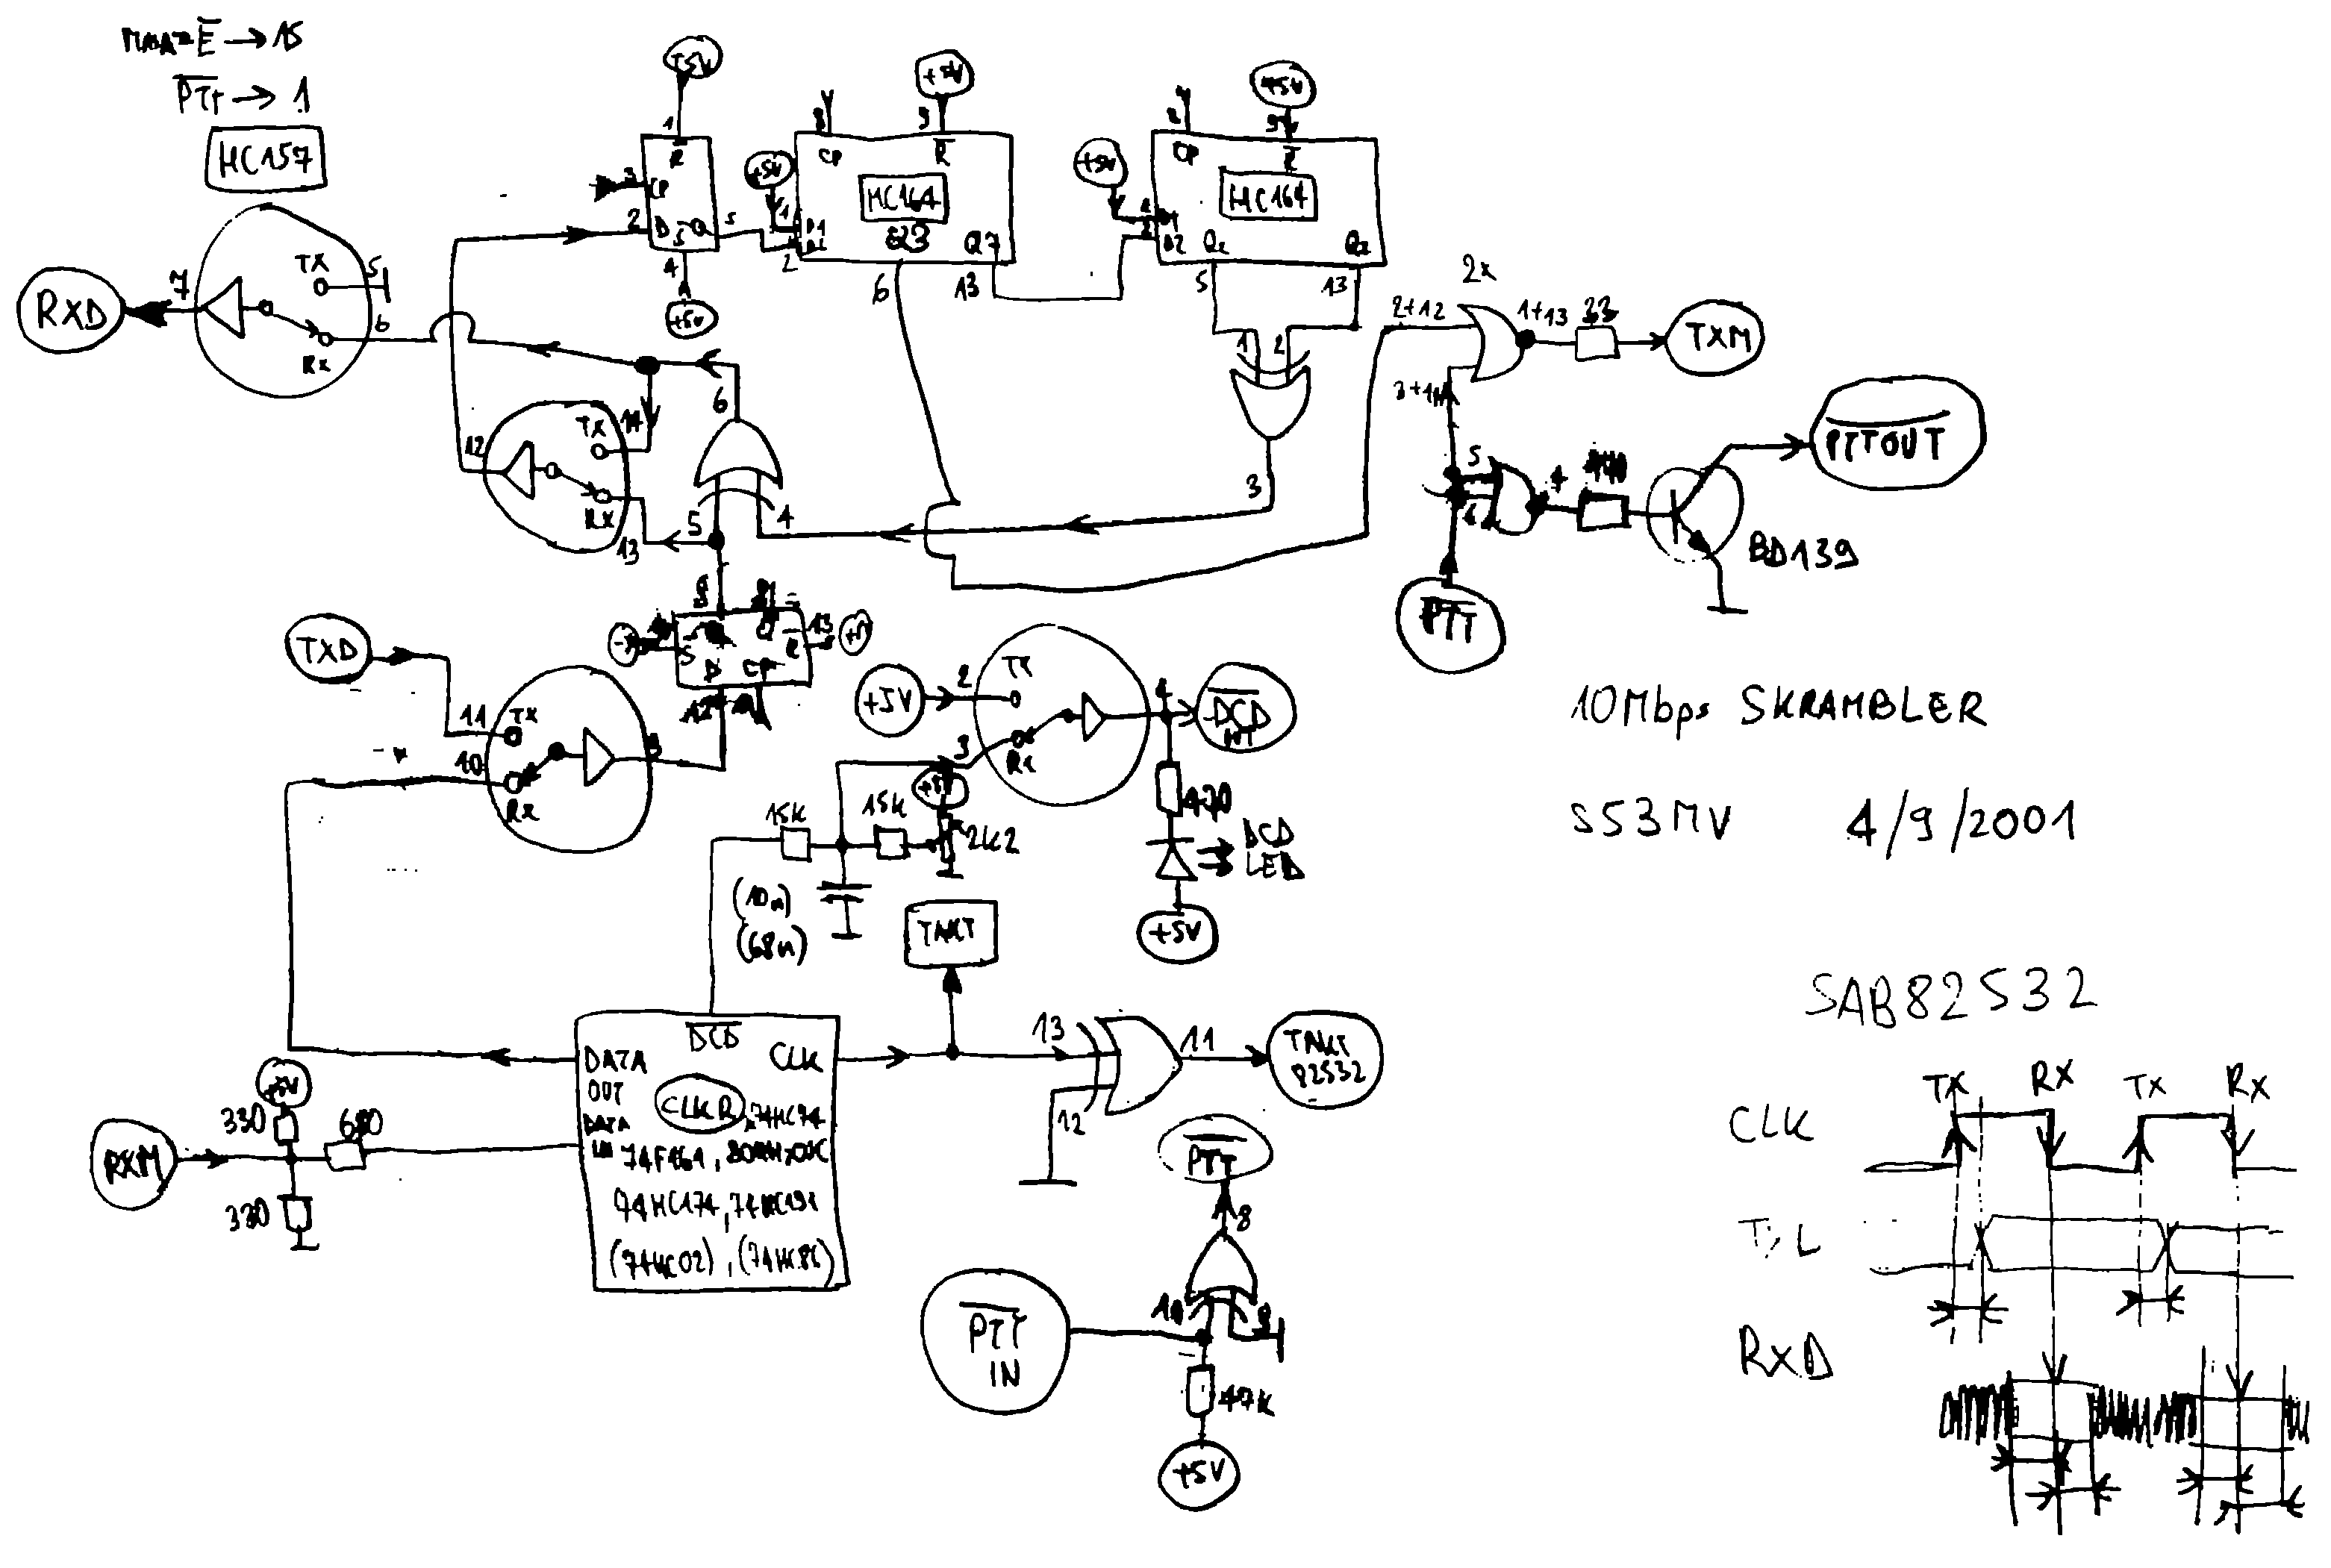 E → 15
PTT → 1
HC157
+5V
1
R
3
CP
2
D
S
5
4
+5V
+5V
8
CP
+5V
9
R
HC164
Q3
Q7
D1
1
2
6
13
+5V
8
CP
+5V
9
R
HC164
D1
D2
1
2
5
13
RXD
7
TX
5
6
Rx
12
TX
14
Rx
13
6
5
4
1
2
3
2x
2+12
1+13
33
TXM
5
4
PTTOUT
BD139
PTT
TXD
11
TX
10
Rx
9
12
S
D
CP
Q
R
13
+5V
2
TX
3
Rx
4
DCD
INT
470
DCD
LED
+5V
15K
15K
2K2
(10n)
(68n)
TAKT
10Mbps SKRAMBLER
S53MV 4/9/2001
DATA
OUT
DCD
CLK
CLKR
74HC74
DATA
IN
74F161
74HC174, 74HC191
(74HC02), (74HC86)
13
12
11
TAKT
82532
+5V
330
680
RXM
330
PTT
8
10
9
PTT
IN
47K
+5V
SAB82532
TX RX TX RX
CLK
RXD